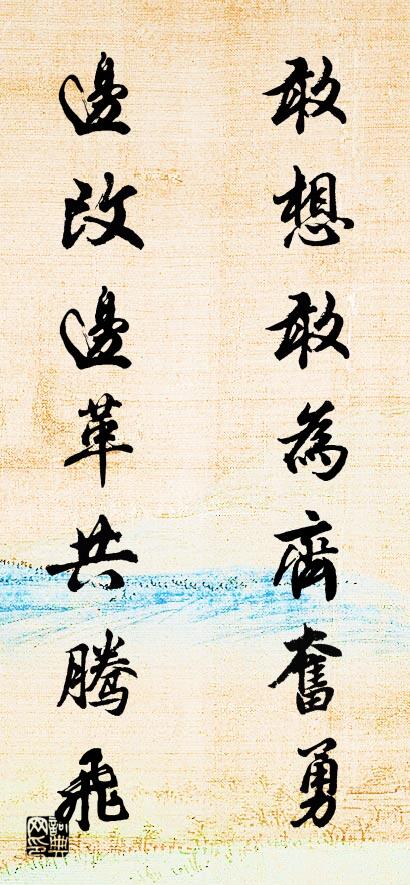 敢想敢為齊奮勇
邊改邊革共騰飛